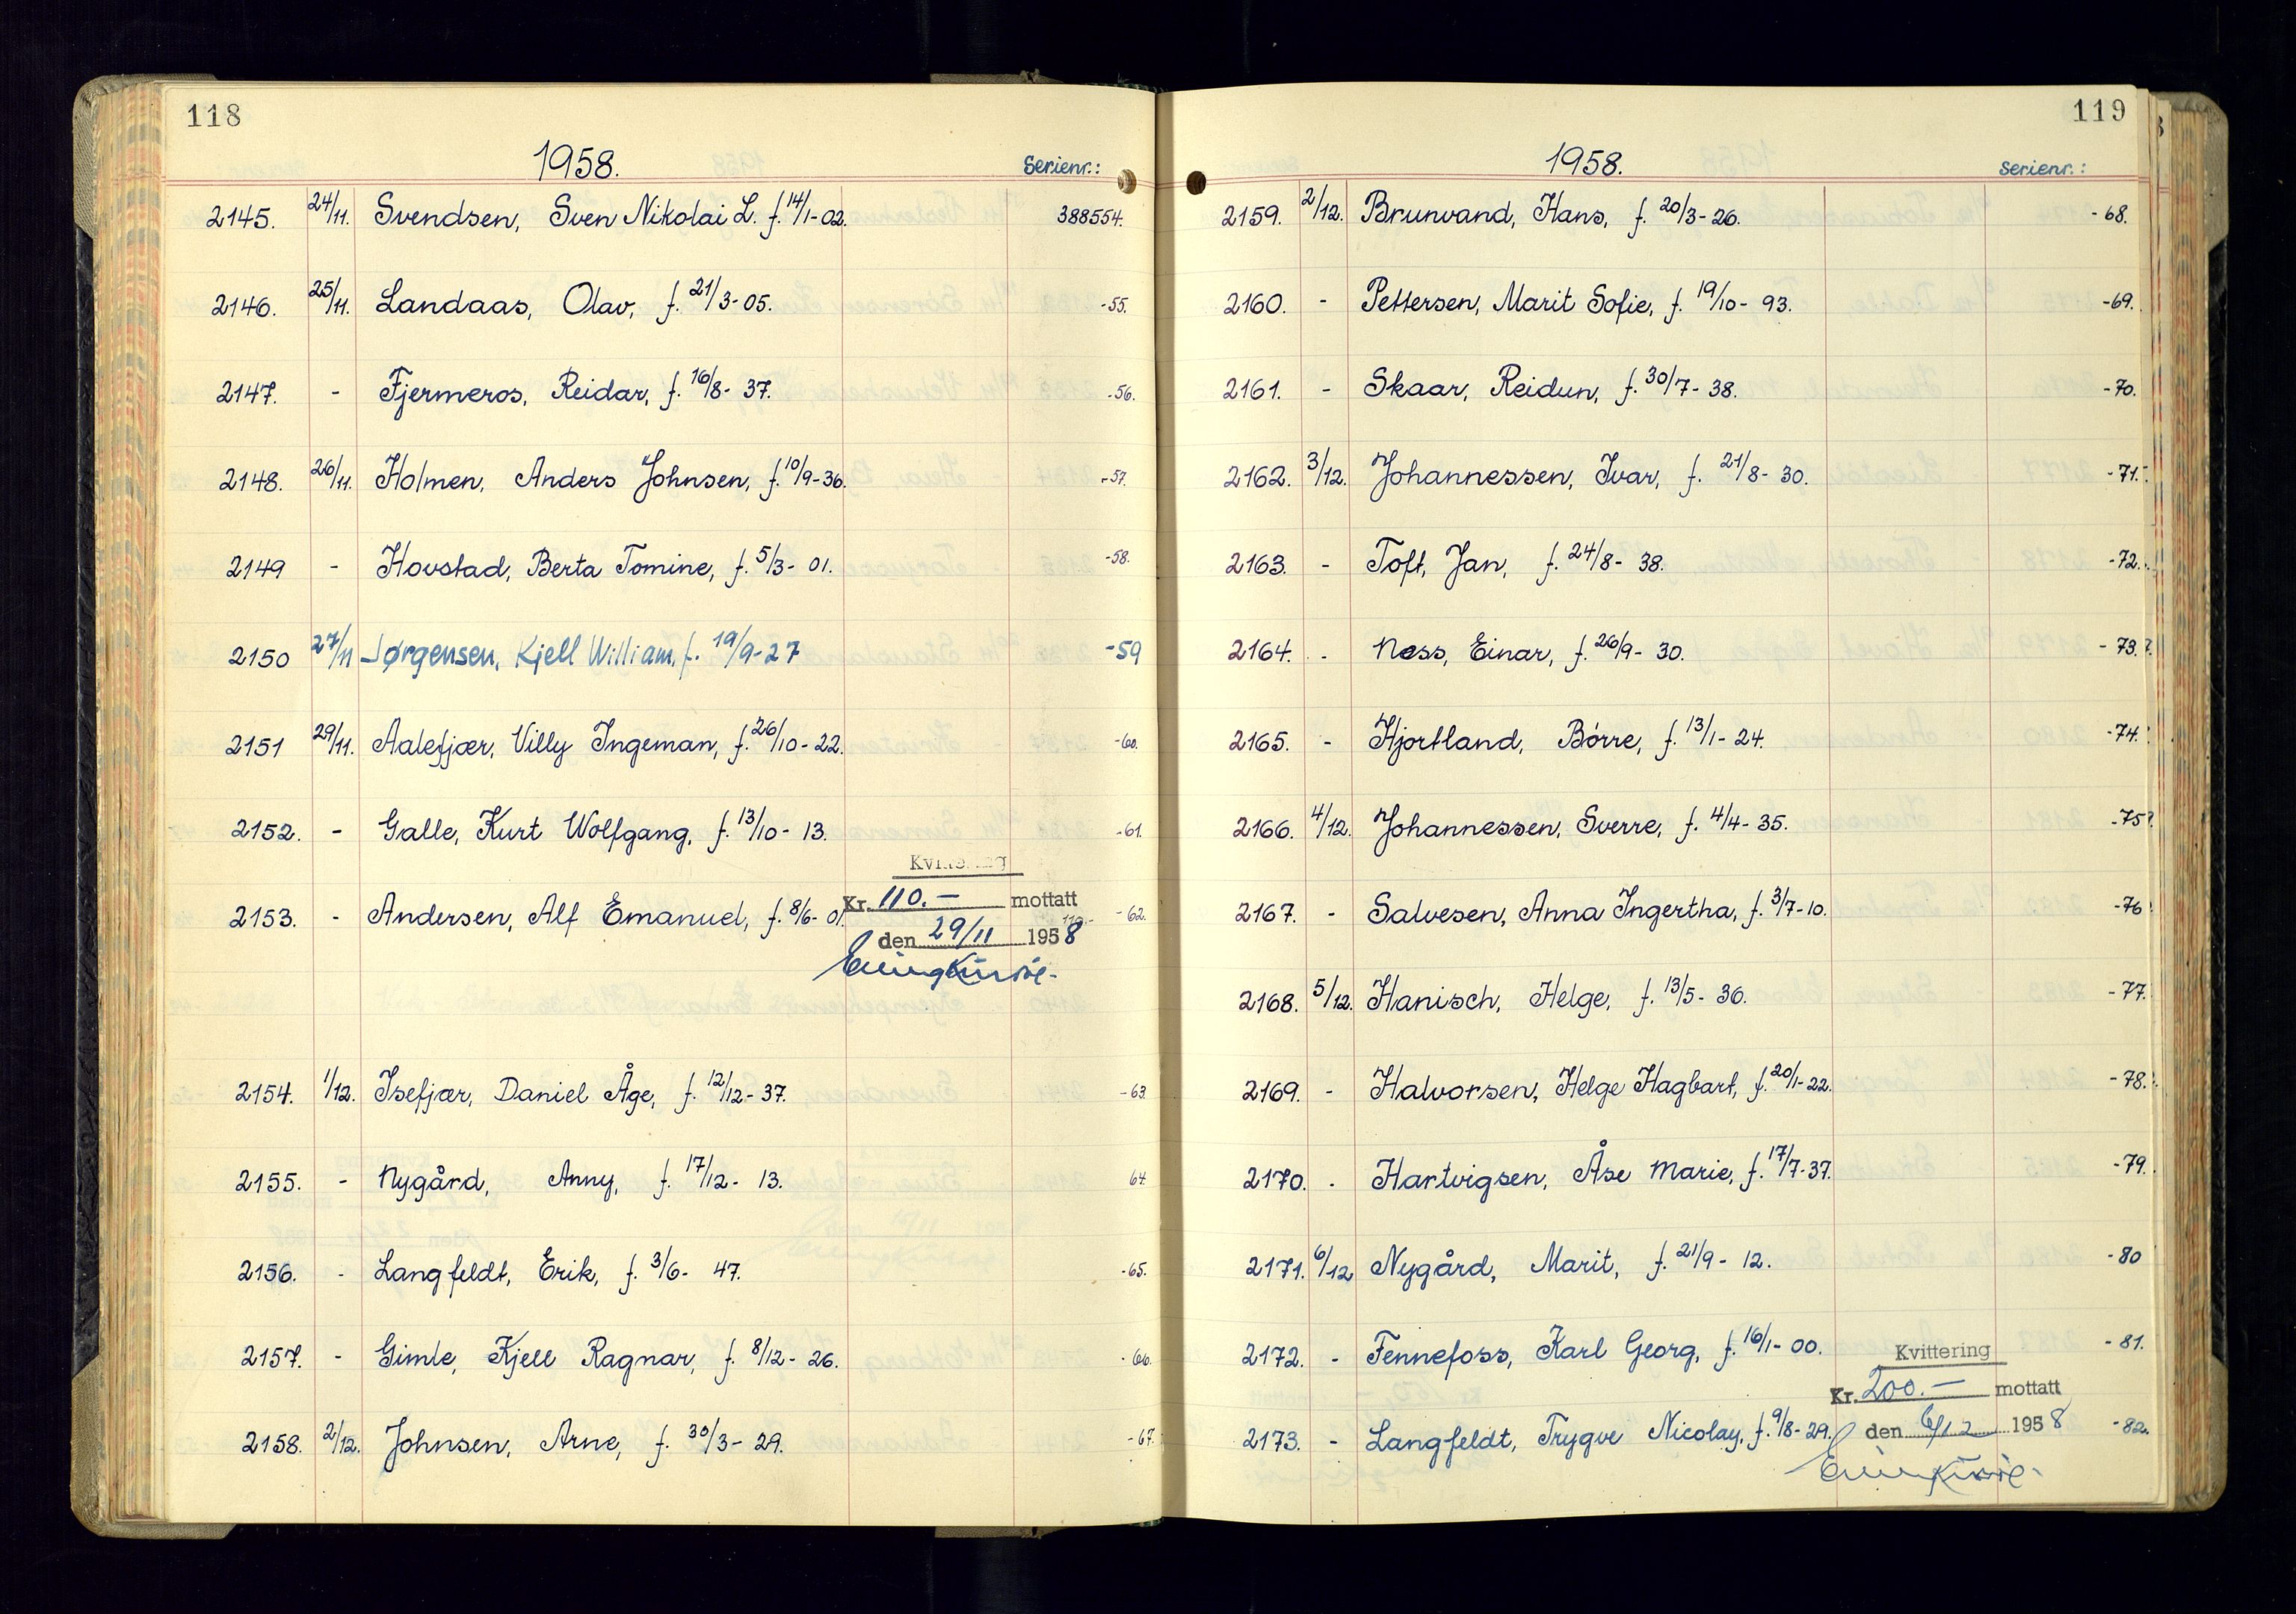 118
1958. Serienr.:
2145. 24/11. Svendsen, Sven Nikolai L. f. 14/1-02. 388554.
2146. 25/11. Landaas, Olav, f. 21/3-05. -55.
2147. - Fjermeros, Reidar, f. 16/8-37. -56.
2148. 26/11. Holmen, Anders Johnsen, f. 10/9-36. -57.
2149 - Hovstad, Berta Tomine, f. 5/3-01. -58.
2150 27/11 Jørgensen, Kjell William, f. 19/9-27 -59
2151 29/11. Aalefjær, Villy Ingeman, f. 26/10-22. -60.
2152. - Galle, Kurt Wolfgang, f. 13/10-13. -61.
Kvittering
2153. - Andersen, Alf Emanuel, f. 8/6-01. Kr. 110.- mottatt 110.- -62.
den 29/11 1958
2154. 1/12. Isefjær, Daniel Åge, f. 12/12-37. -63.
2155. - Nygård, Anny, f. 17/12-13. 64
2156. - Langfeldt, Erik, f. 3/6-47. -65.
2157. - Gimle, Kjell Ragnar, f. 8/12-26. -66.
2158. 2/12. Johnsen, Arne, f. 30/3-29. -67.
119
1958. Serienr.:
2159. 2/12. Brunvand, Hans, f. 20/3-26. -68.
2160. - Pettersen, Marit Sofie, f. 19/10-93. -69.
2161. - Skaar, Reidun, f. 30/7-38. -70.
2162. 3/12. Johannessen, Ivar, f. 21/8-30. -71.
2163. - Toft, Jan, f. 24/8-38. -72.
2164. - Ness, Einar, f. 26/9-30. -73.
2165. - Hjortland, Børre, f. 13/1-24. -74.
2166. 4/12. Johannessen, Sverre, f. 4/4-35. -75
2167. - Salvesen, Anna Ingertha, f. 3/7-10. -76
2168. 5/12. Hanisch, Helge, f. 13/5-36. -77.
2169. - Halvorsen, Helge Hagbart, f. 20/1-22. -78.
2170. - Hartvigsen, Åse Marie, f. 17/7-37. -79.
2171. 6/12 Nygård, Marit, f. 21/9-12. -80
2172. - Fennefoss, Karl Georg, f. 16/1-00. -81.
Kvittering
Kr. 200.- mottatt
2173. - Langfeldt, Trygve Nicolay, f. 9/8-29. den 6/12 1958 -82.